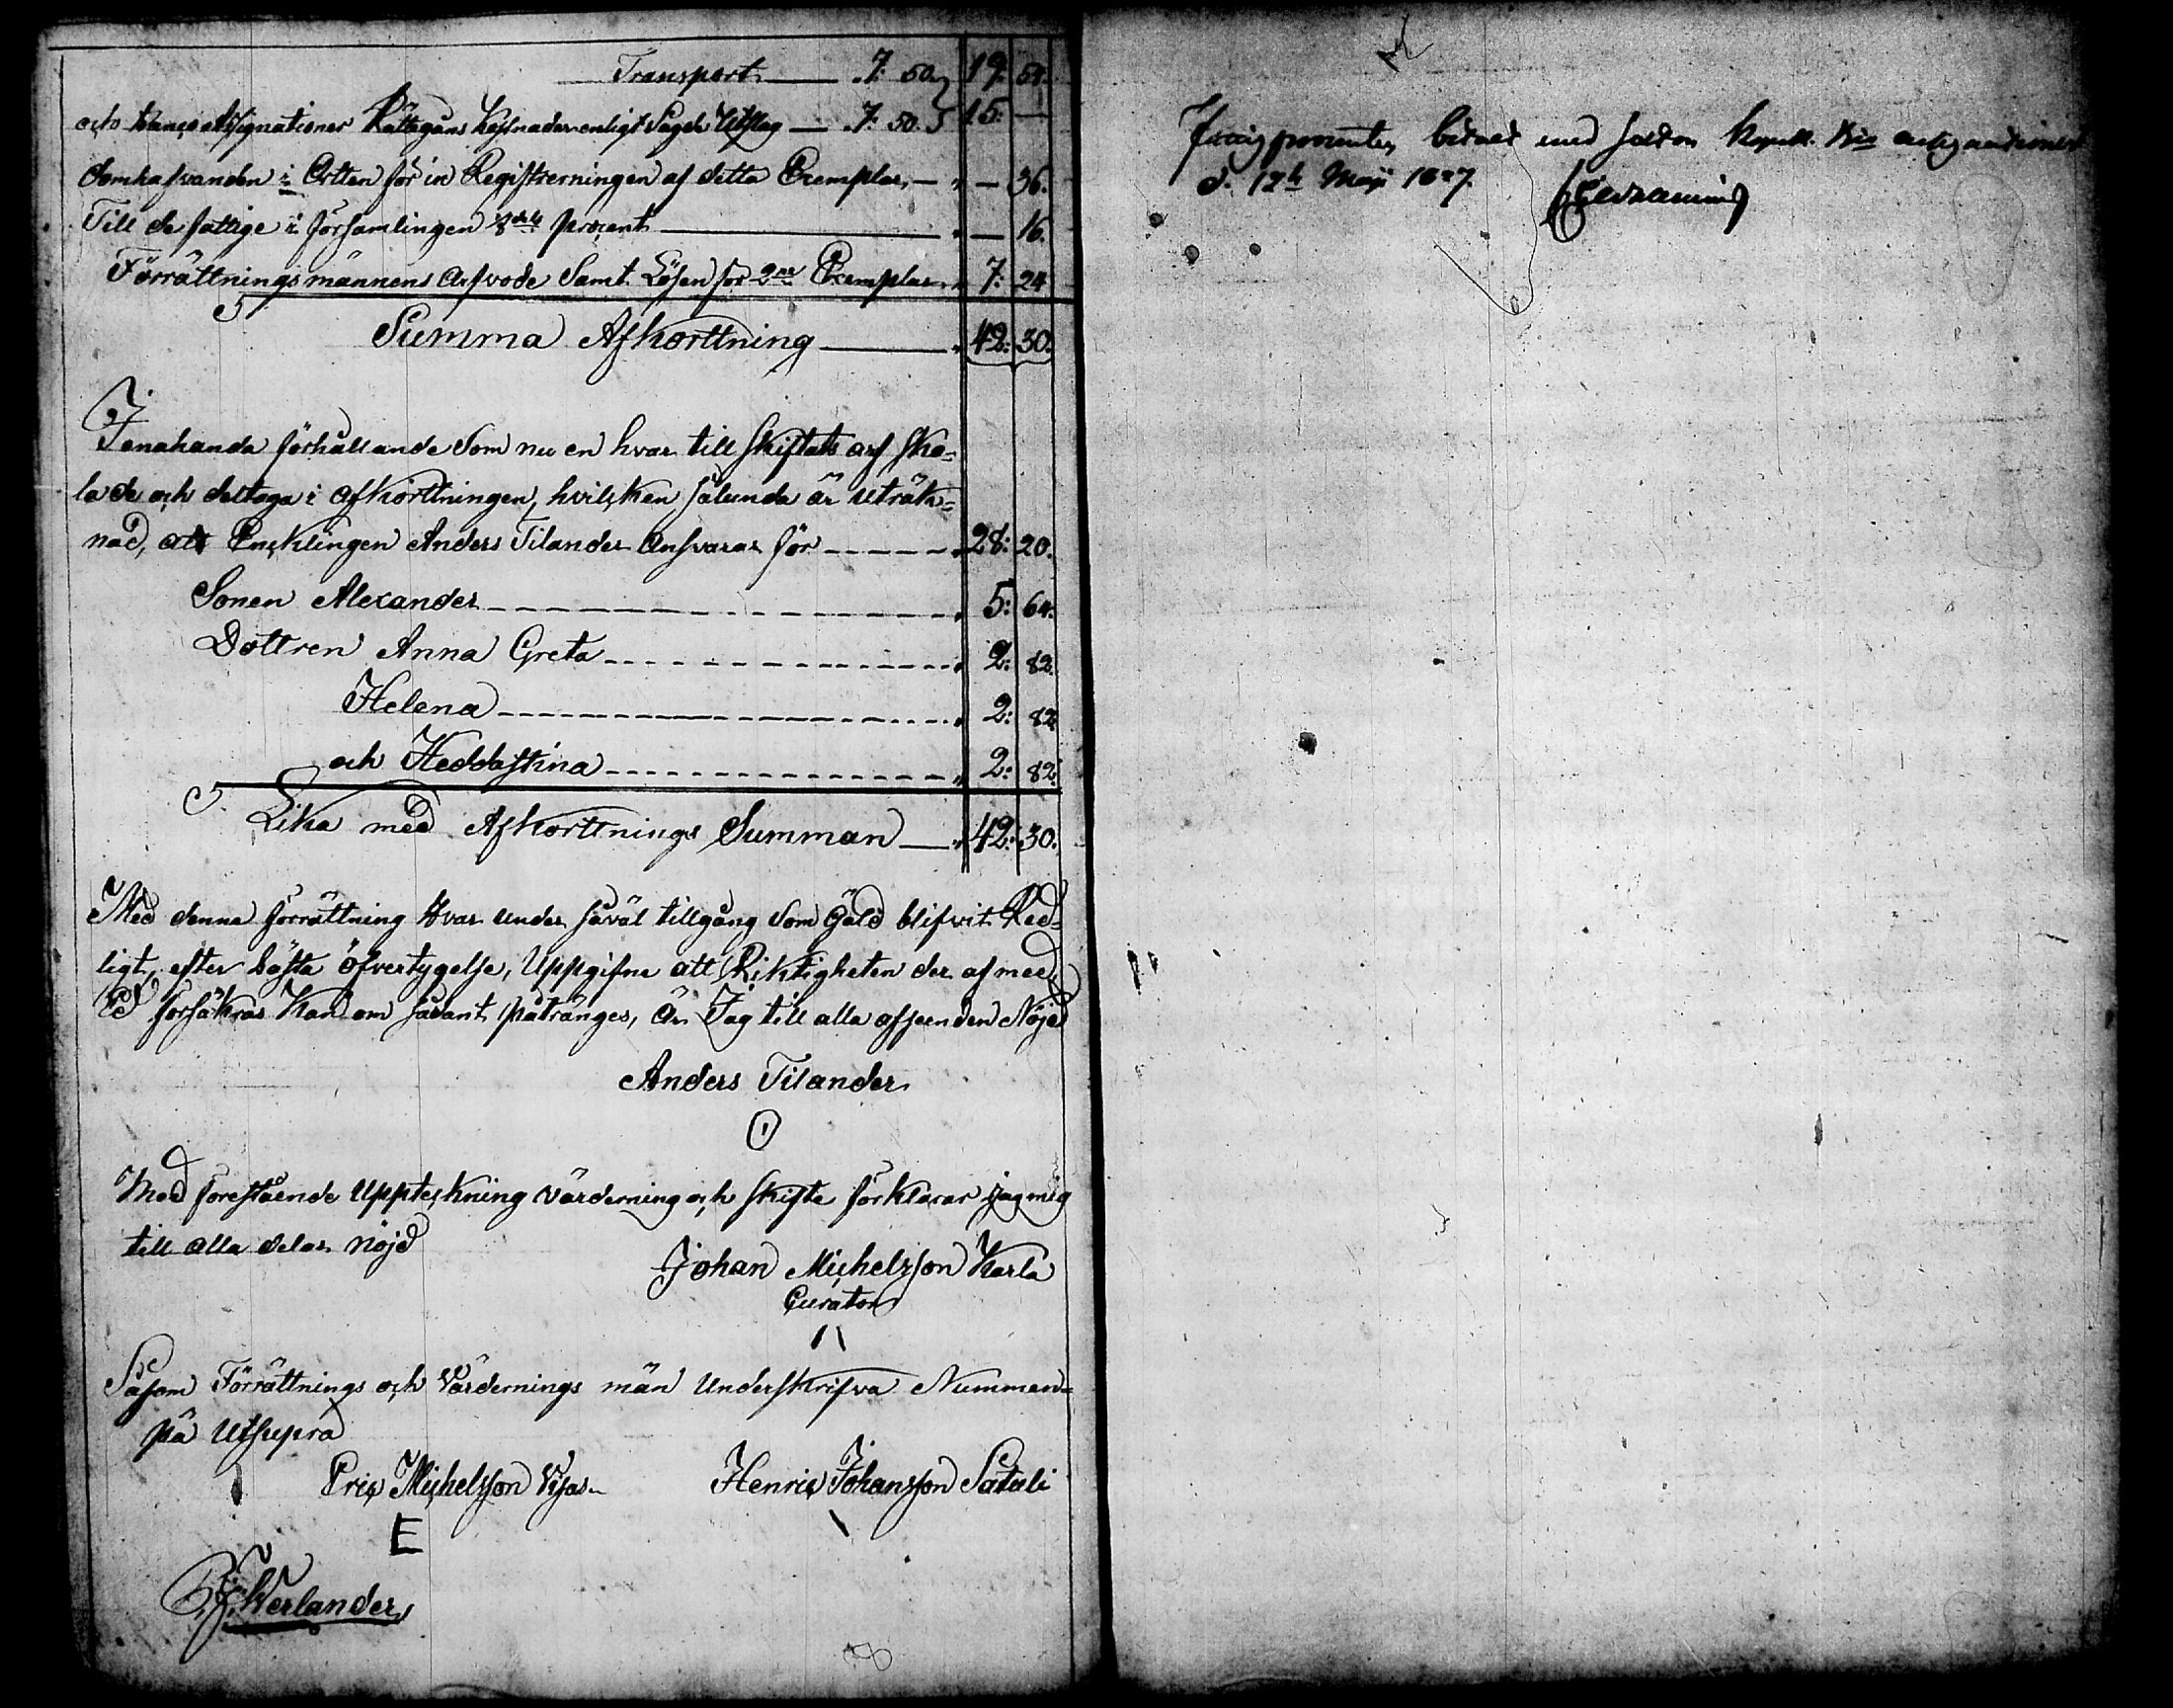 Transport — 7: 50. 19: 54.
och banco Assignationer Rättegåns Kostnader enligt Sagde Utslag — 7. 50. 15: —
Domhafvanden i Orten för in Registrerningen af detta Exemplar, — „ — 36.
Till de fattige i församlingen 8dels procent — „ — 16.
Förrättningsmännens Arfvode Samt Lösen för 2ne Exemplar „ 7: 24
Summa Afkorttning — „ 42: 30.
I enahanda förhållande Som nu en hvar till skiftats arf ska-
la de och deltaga i afkorttningen, hvilcken sålunda är uträk-
nad, att Encklingen Anders Tilander Ansvarar för — „ 28: 20.
Sonen Alexander — „ 5: 64.
Dottren Anna Greta — „ 2: 82.
Helena — „ 2: 82
och Heddastina — „ 2: 82.
Lika med Afkorttnings Summan — „ 42: 30.
Med denna förrättning Hvar under såväl tillgång Som Gäld blifvit Red-
ligt, efter bästa öfvertygelse, Uppgifne att Riktigheten der af med
Ed försäkras Kan om sådant påtränges, är Jag till alla afseenden Nöjd
Anders Tilander
Med förestående Uppteckning värderning och skifte förklarar jag mig
till alla delar nöjd
Johan Michelsson Karla
Curator
Såsom Förrättnings och Värdernings män Underskrifva Nummen-
pä Utsupra
Eric Michelsson Henric Johansson Satuli
E
Werlander
Fattigprocenten betald med
d. 12te Maji 1827.